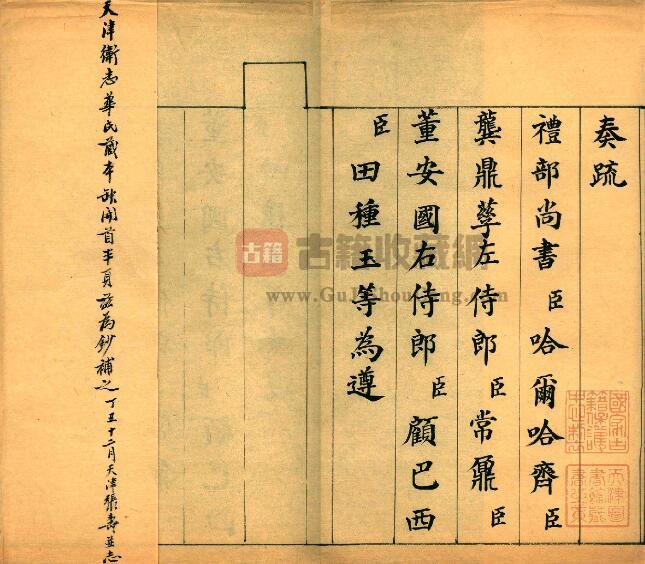 奏疏
禮部尚書臣哈爾哈齊臣
龔鼎孳左侍郎臣常鼐臣
董安國右侍郎臣顧巴西
臣田種玉等為遵
天津衛志華氏藏本缺開首半頁茲為鈔補之丁丑十二月天津張壽並志
古籍
古籍收藏網